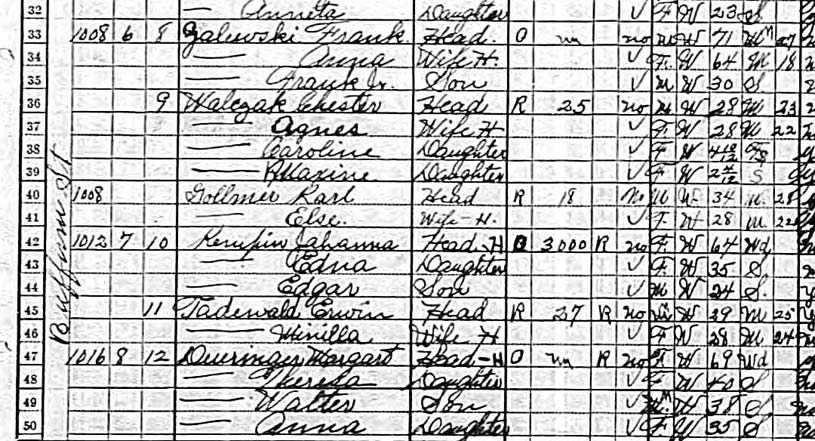 32 — Anneta Daughter ✓ F W 23 S
33 1008 6 8 Zalewski Frank Head O no W 71 M 27
34 — Anna Wife H ✓ F W 64 M 18
35 — Frank Jr. Son ✓ M W 30 S
36 9 Walczak Chester Head R 25 no M W 28 M 23
37 — Agnes Wife H ✓ F W 28 M 22
38 — Caroline Daughter ✓ F W S
39 — Daughter ✓ F W S
40 1008 Gollmer Karl Head R 18 No M W 34 M
41 — Else. Wife-H. ✓ F W 28 M 22
42 1012 7 10 Johanna Head-H O 3000 R no F W 64 Wd
43 — Edna Daughter ✓ F W 35 S
44 — Edgar Son ✓ M W 24 S.
45 11 Tadewald Erwin Head R 27 R no M W 29 M 25
46 — Wife H ✓ F W 28 M 24
47 1016 8 12 Dueringer Margart Head-H O R no F W 69 Wd
48 — Theresa Daughter ✓ F W 40 S
49 — Walter Son ✓ M W 38 S,
50 — Anna Daughter ✓ F W 35 S
Buffum St